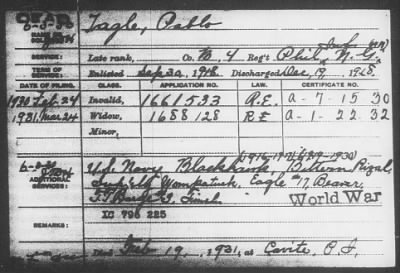 Tagle, Pablo
NAME OF SOLDIER:
SERVICE: Late rank, Co. B. 4 Reg't Phil. Inf. N.G.
TERM OF SERVICE: Enlisted Sep 20, 1918 Discharged Dec. 19, 1918.
DATE OF FILING. CLASS. APPLICATION NO. LAW. CERTIFICATE NO.
1930 Feb. 24 Invalid, 1661533 R.E. A-7-15-30
1931 Mar 24 Widow, 1688128 RE A-1-22-32
Minor,
ADDITIONAL SERVICES: U.S. Navy Blackhawk, Bittern Rizal,
Wompatuck. Eagle #17 Beaver,
Finch World War
XC 796 225
REMARKS:
Died Feb 19, 1931, at Cavite, P.I.